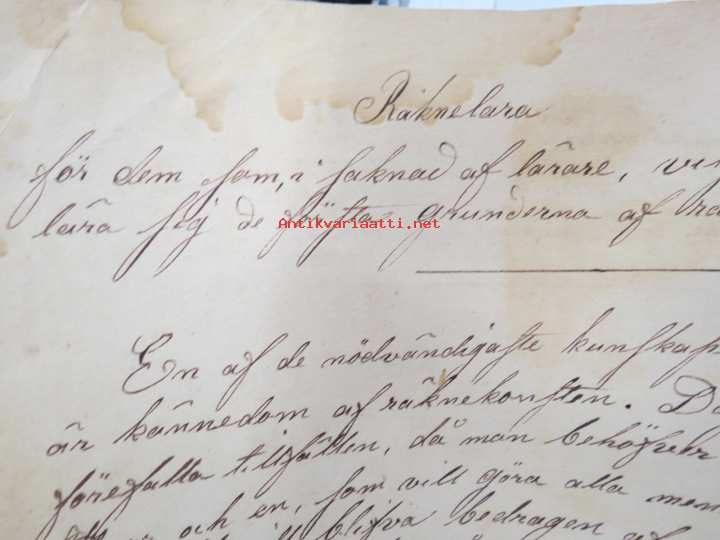 Räknelära
för dem som, i saknad af lärare, vi
lära sig de första grunderna af rä
Antikvariaatti.net
En af de nödvändigaste kunskap
är kännedom af räknekonsten. Da
förefalla tillfällen, då man behöfver
och en, som vill göra alla men
blifva bedragen af